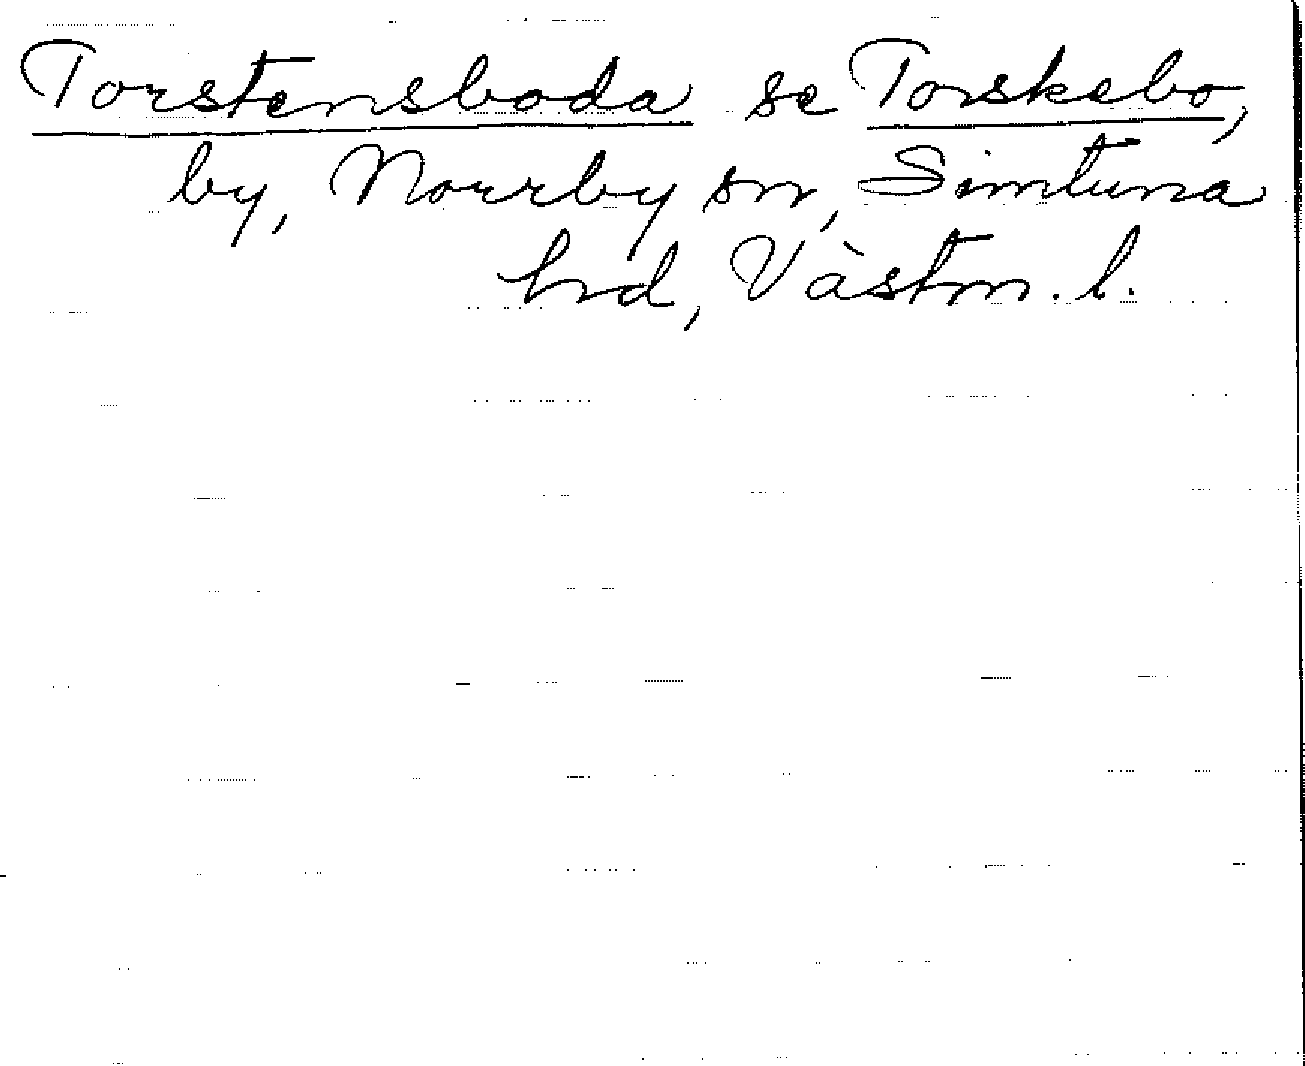 Torstensboda se Torskebo,
by, Norrby sn, Simtuna
hd, Västm. l.